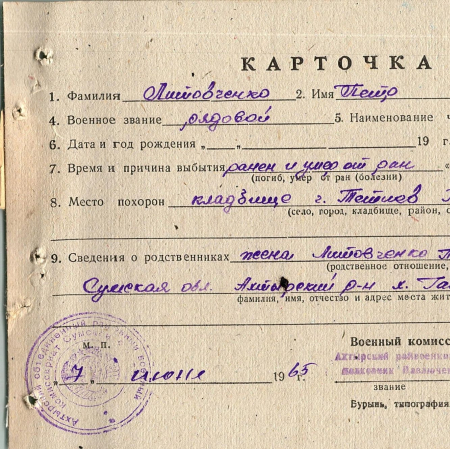 КАРТОЧКА
1. Фамилия Литовченко 2. Имя Петр
4. Военное звание рядовой 5. Наименование ч
6. Дата и год рождения „ “ 19 г
7. Время и причина выбытия ранен и умер от ран «
(погиб, умер от ран (болезни)
8. Место похорон кладбище г. Тетлев
(село, город, кладбище, район, о
9. Сведения о родственниках жена Литовченко
(родственное отношение,
Сумская обл. Ахтырский р-н х. Га
фамилия, имя, отчество и адрес места жит
Военный комисс
м. п.
Ахтырский райвоенко
„ 7 “ июня 1965 г.
звание
Бурынь, типография